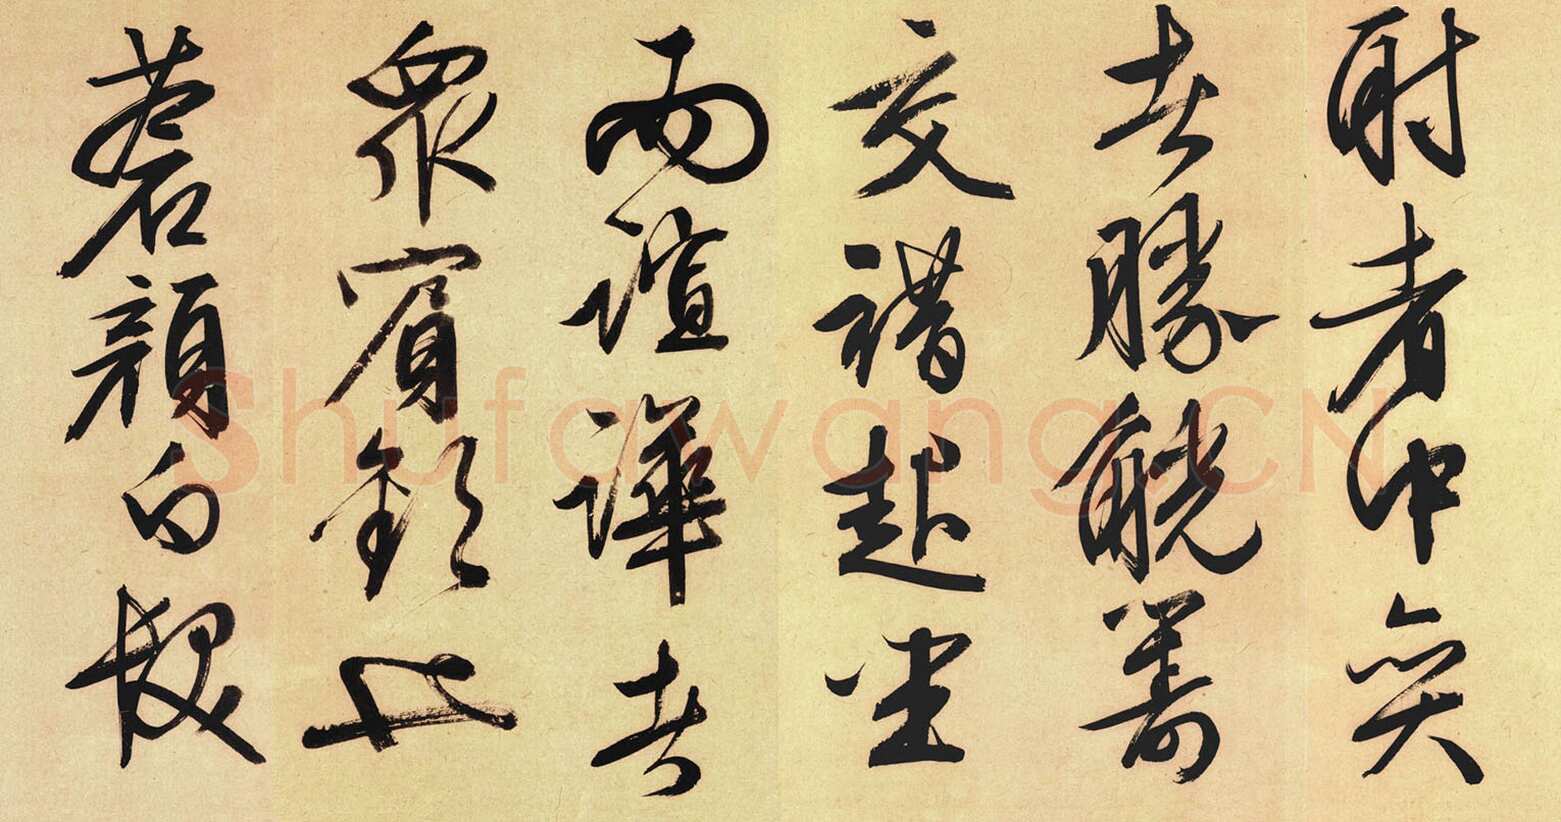 射者中奕
者勝觥籌
交錯起坐
而諠譁者
衆賓歡也
蒼顏白髮
Shufawang.CN